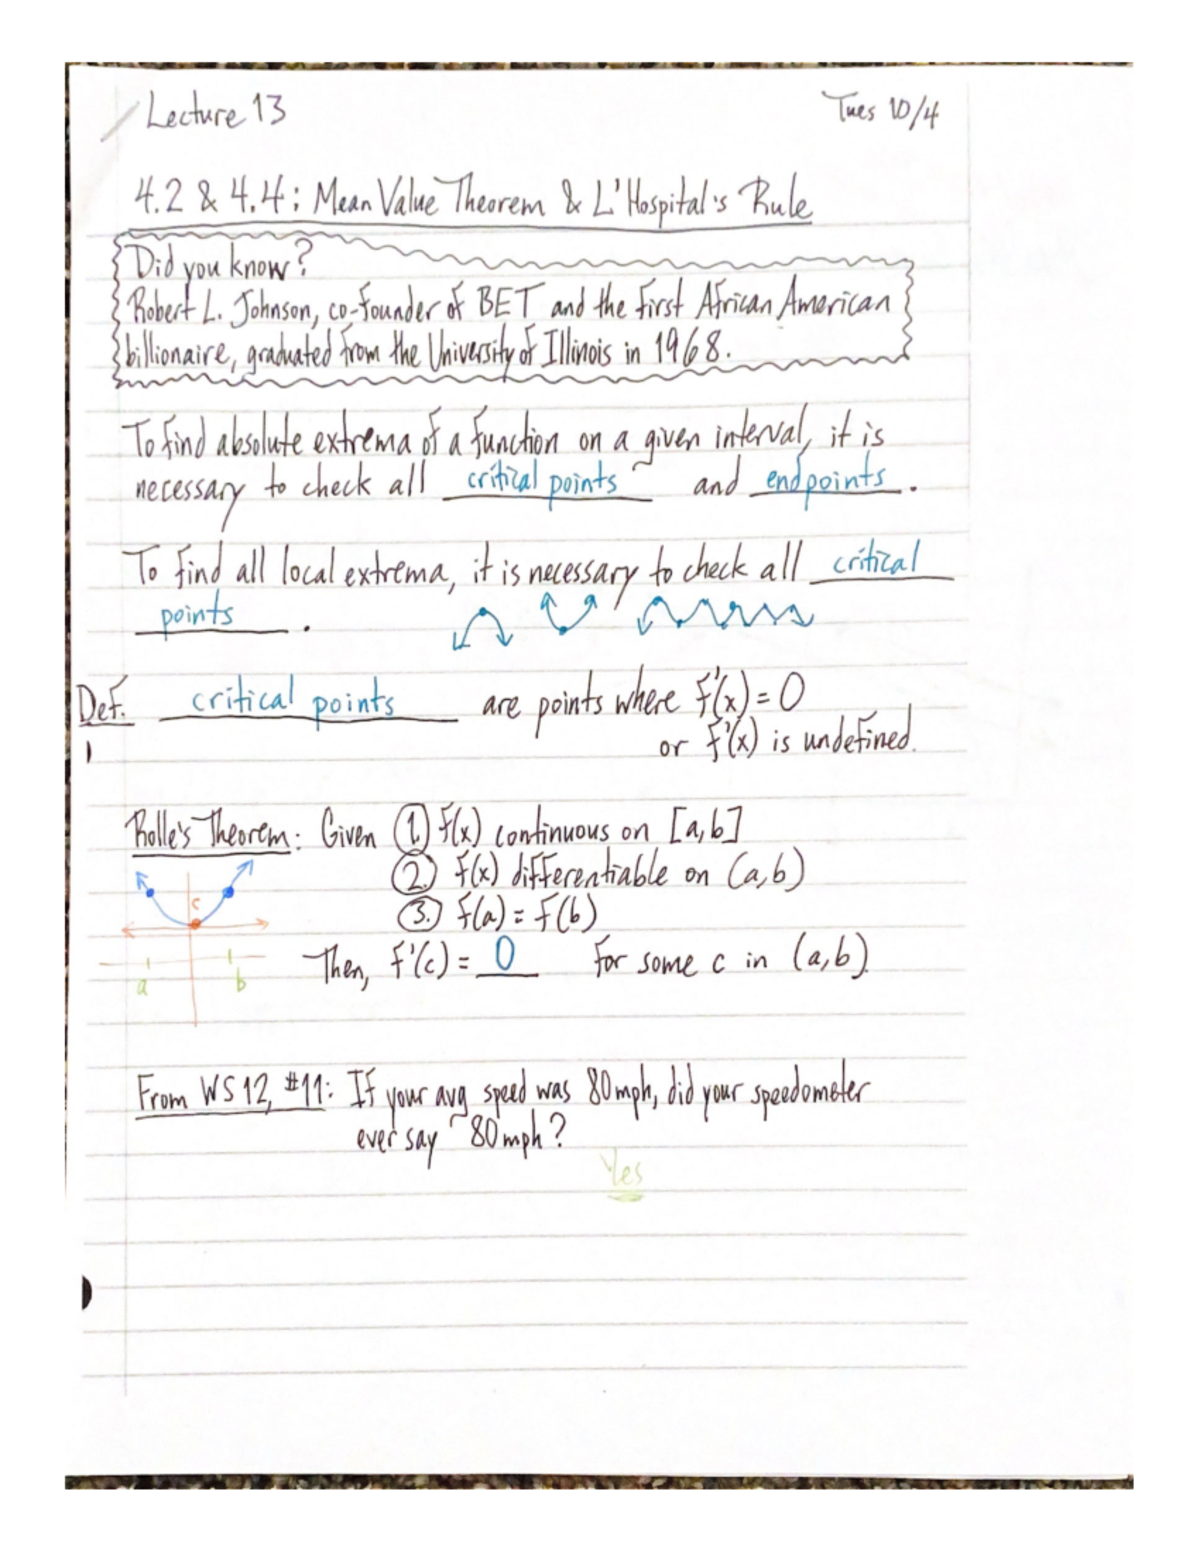 Lecture 13
Tues 10/4
4.2 & 4.4: Mean Value Theorem & L'Hospital's Rule
Did you know?
Robert L. Johnson, co-founder of BET and the first African American
billionaire, graduated from the University of Illinois in 1968.
To find absolute extrema of a function on a given interval, it is
necessary to check all critical points and endpoints.
To find all local extrema, it is necessary to check all critical
points.
Def. critical points are points where f'(x) = 0
or f'(x) is undefined.
Rolle's Theorem: Given 1. f(x) continuous on [a,b]
2. f(x) differentiable on (a,b)
c
3. f(a) = f(b)
Then, f'(c) = 0 for some c in (a,b).
a b
From WS 12, #11: If your avg speed was 80mph, did your speedometer
ever say 80mph?
Yes